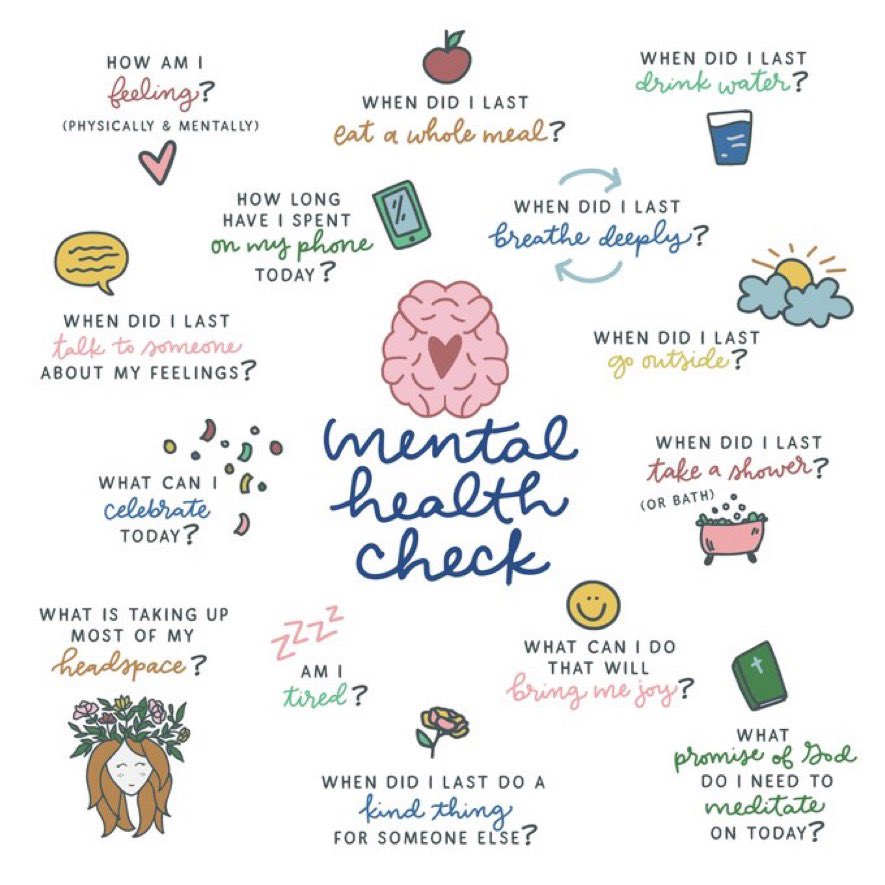 HOW AM I
feeling?
(PHYSICALLY & MENTALLY)
WHEN DID I LAST
eat a whole meal?
WHEN DID I LAST
drink water?
HOW LONG
HAVE I SPENT
on my phone
TODAY?
WHEN DID I LAST
breathe deeply?
WHEN DID I LAST
talk to someone
ABOUT MY FEELINGS?
WHEN DID I LAST
go outside?
mental
health
check
WHAT CAN I
celebrate
TODAY?
WHEN DID I LAST
take a shower?
(OR BATH)
WHAT IS TAKING UP
MOST OF MY
headspace?
ZZZZ
AM I
tired?
WHAT CAN I DO
THAT WILL
bring me joy?
WHEN DID I LAST DO A
kind thing
FOR SOMEONE ELSE?
WHAT
promise of God
DO I NEED TO
meditate
ON TODAY?